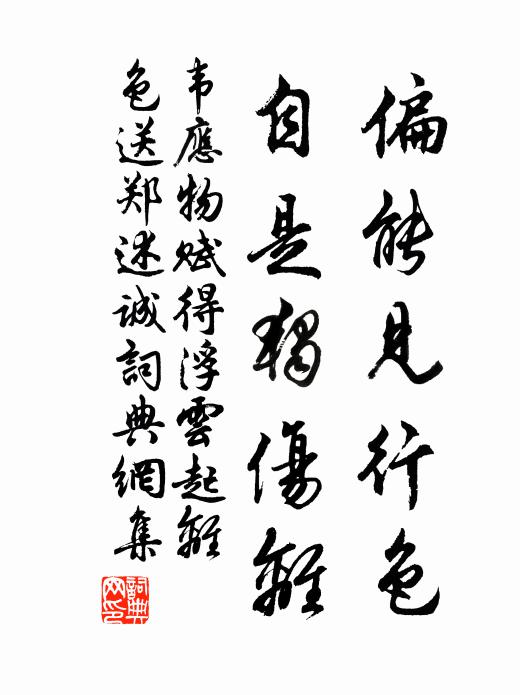 偏能见行色
自是獨傷離
韦應物赋得浮雲起離
色送郑述诚詞典網集
詞典
网印